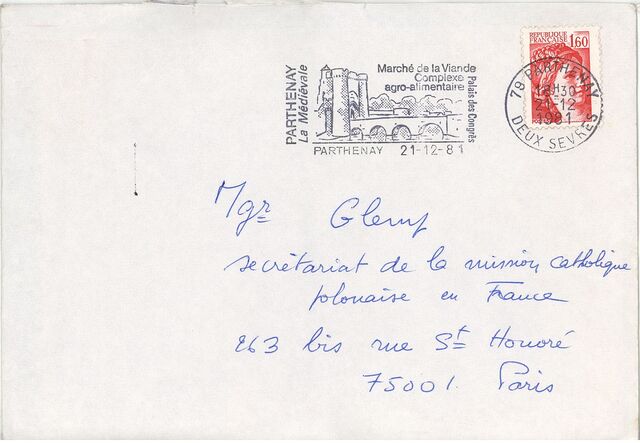 PARTHENAY
La Médiévale
Marché de la Viande
Complexe
agro-alimentaire
Palais des Congrès
PARTHENAY 21-12-81
REPUBLIQUE
FRANÇAISE 1,60
79 PARTHENAY
H30
21-12
1981
DEUX SEVRES
Mgr Glemp
secrétariat de la mission catholique
polonaise en France
263 bis rue St Honoré
75001 Paris